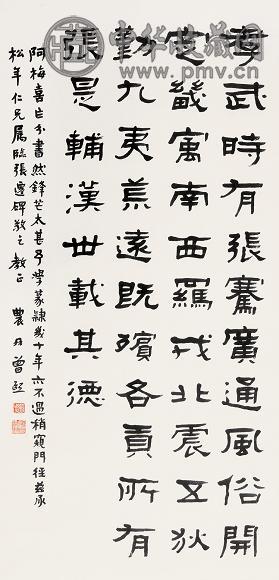 中华收藏网
www.pmv.cn
孝武時有張騫廣通風俗開
定畿寓南西羈戎北震五狄
勤九夷荒遠既殯各貢所有
張是輔漢世載其德
阿梅喜作分書然鋒芒太甚予學篆隸幾十年亦不過稍窺門徑茲承
松年仁兄屬臨張遷碑 教正 農髯曾熙